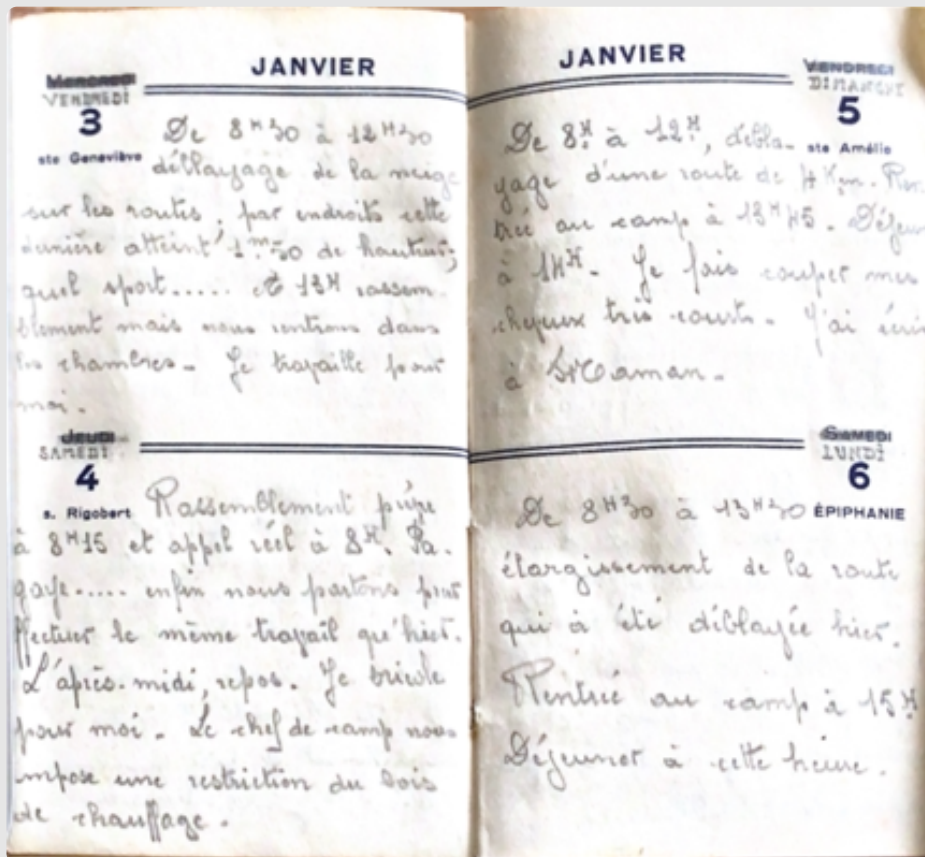 JANVIER
MERCREDI
VENDREDI
3
ste Geneviève
De 8H30 à 12H30
déblayage de la neige
sur les routes, par endroits cette
dernière atteint 1m50 de hauteur;
quel sport..... et 13H rassem-
blement mais nous rentrons dans
les chambres. Je travaille pour
moi.
JEUDI
SAMEDI
4
s. Rigobert
Rassemblement
à 8H15 et appel réel à 8H. Pa-
gaye..... enfin nous partons pour
effectuer le même travail qu'hier.
L'après-midi, repos. Je bricole
pour moi. Le chef de camp nous
impose une restriction du bois
de chauffage.
JANVIER
VENDREDI
DIMANCHE
5
ste Amélie
De 8H à 12H, débla-
yage d'une route de 4 Km. Ren-
trée au camp à 13H45. Déjeuner
à 14H. Je fais couper mes
cheveux très courts. J'ai écrit
à
SAMEDI
LUNDI
6
ÉPIPHANIE
De 8H30 à 13H30
élargissement de la route
qui à été déblayée hier.
Rentrée au camp à 15H
Déjeuner à cette heure.